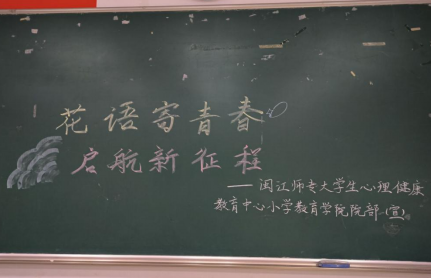 花语寄青春
启航新征程
——闽江师专大学生心理健康
教育中心小学教育学院院部(宣)